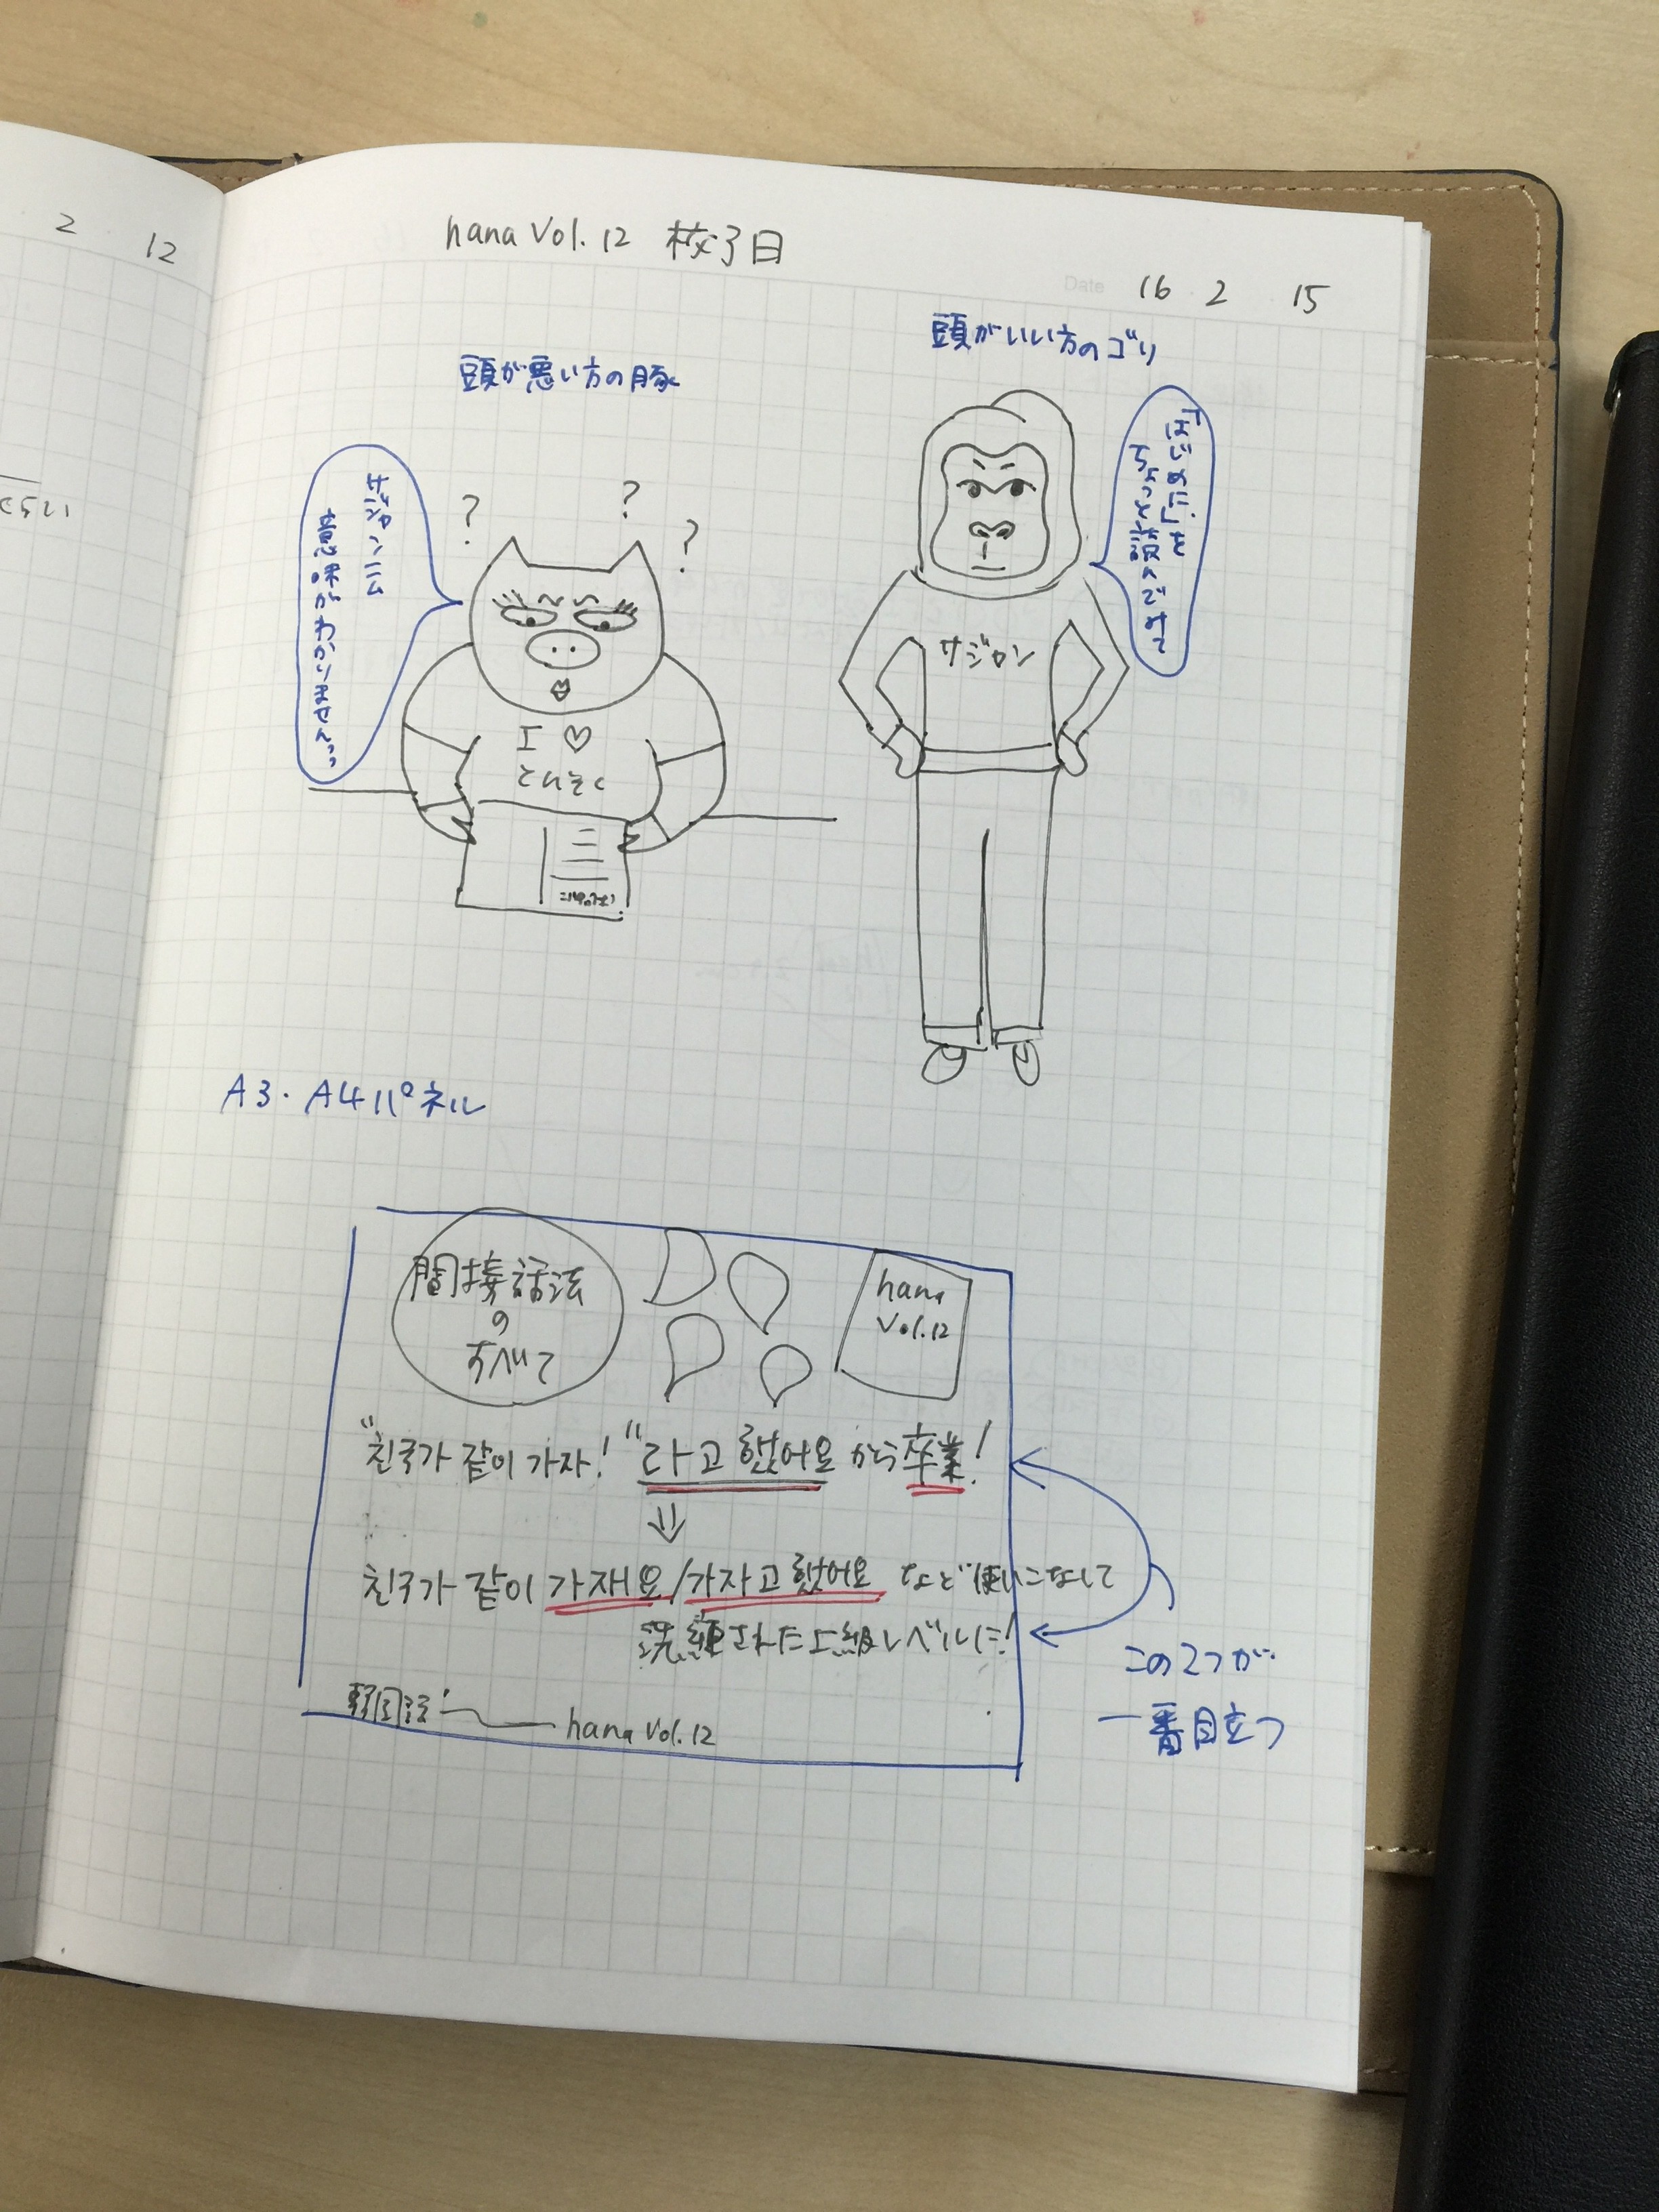 2 12
hana Vol. 12 校了日
Date 16 2 15
頭が悪い方の豚
頭がいい方のゴリ
サジャンニム
意味がわかりませんっっ
? ? ?
I ♡
といそく
「はじめに」を
ちょっと読んでみて
サジャン
A3・A4パネル
間接話法
の
すべて
hana
Vol.12
"친구가 같이 가자!"라고 했어요から卒業!
⇓
친구가 같이 가재요/가자고 했어요 など使いこなして
洗練された上級レベルに!
韓国語 hana Vol.12
この2つが
一番目立つ